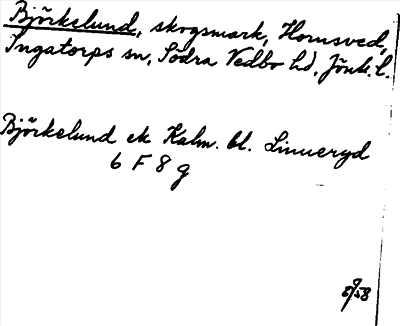 Björkelund, skogsmark, Hornsved,
Ingatorps sn, Södra Vedbo hd, Jönk. l.
Björkelund ek Kalm. bl. Linneryd
6 F 8 g